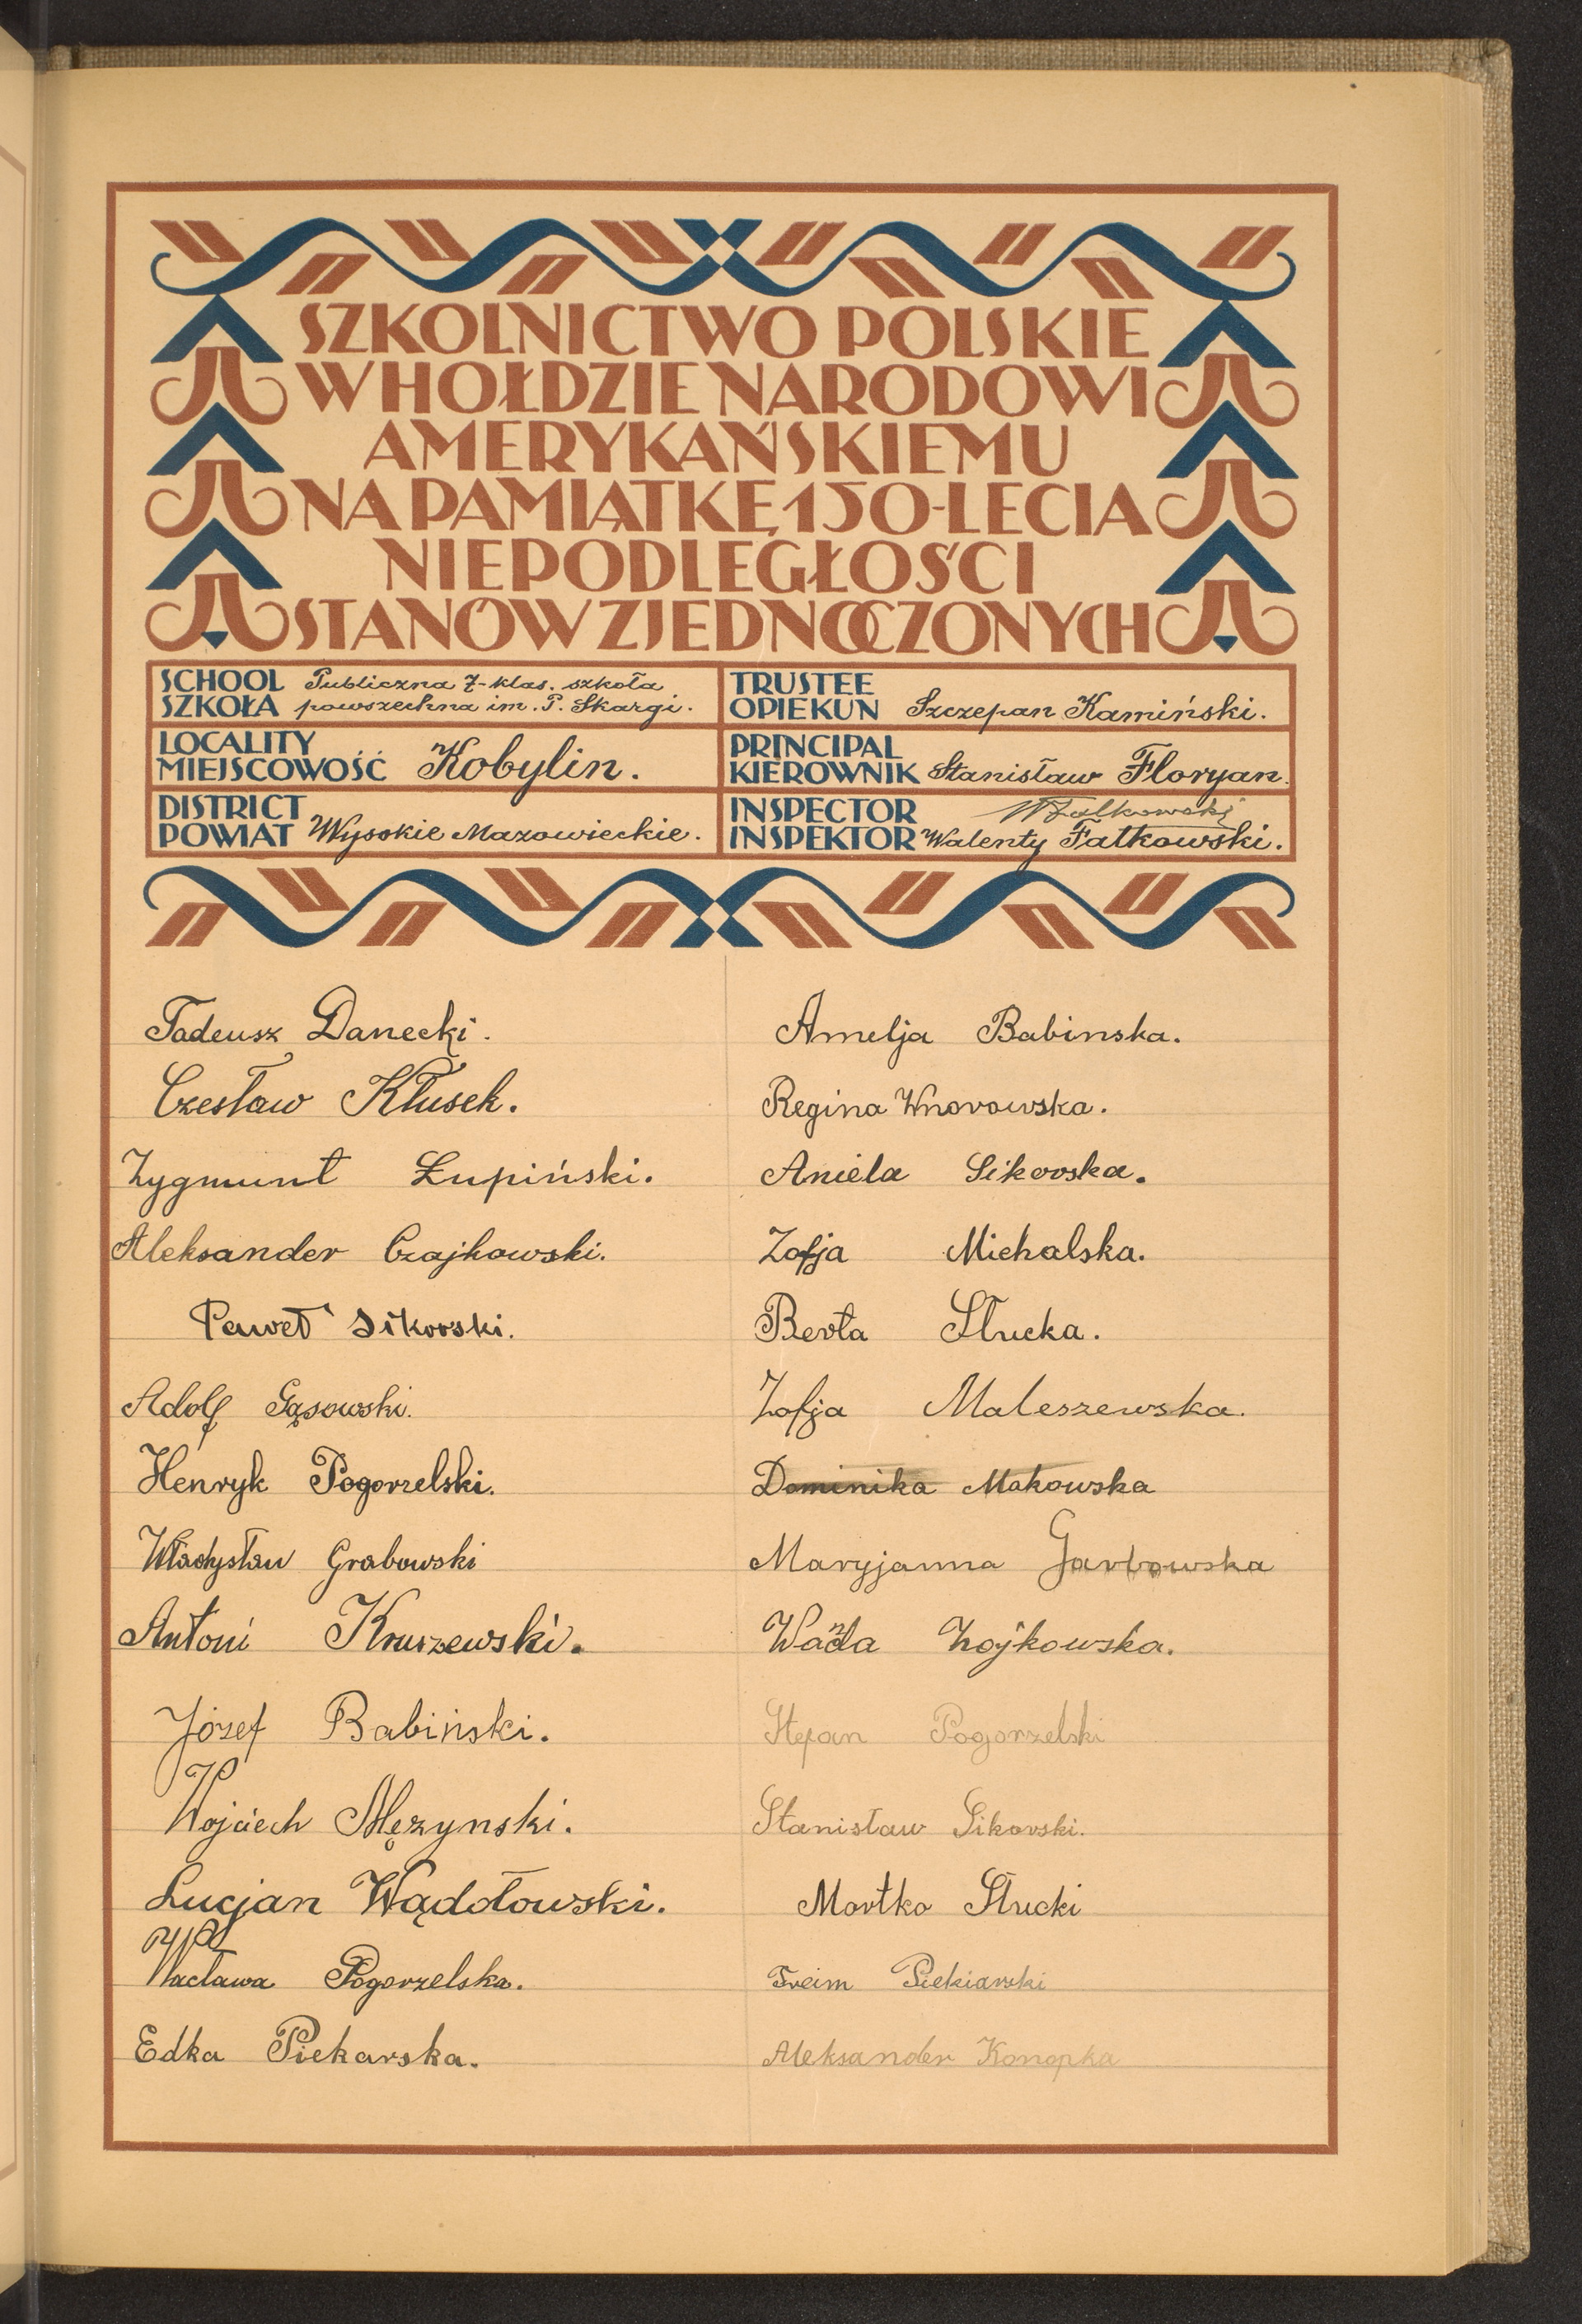 SZKOLNICTWO POLSKIE
W HOŁDZIE NARODOWI
AMERYKAŃSKIEMU
NA PAMIĄTKĘ 150-LECIA
NIEPODLEGŁOŚCI
STANÓW ZJEDNOCZONYCH
SCHOOL Publiczna 7-klas. szkoła
SZKOŁA powszechna im. P. Skargi.
LOCALITY
MIEJSCOWOŚĆ Kobylin.
DISTRICT
POWIAT Wysokie Mazowieckie.
TRUSTEE
OPIEKUN Szczepan Kamiński.
PRINCIPAL
KIEROWNIK Stanisław Floryan.
INSPECTOR WFalkowski
INSPEKTOR Walenty Fałkowski.
Tadeusz Danecki.
Czesław Kłusek.
Zygmunt Łupiński.
Aleksander Czajkowski.
Paweł Sikorski.
Adolf Gąsowski.
Henryk Pogorzelski.
Władysław Grabowski
Antoni Kruszewski.
Józef Babiński.
Wojciech Mężynski.
Lucjan Wądołowski.
Wacława Pogorzelska.
Edka Piekarska.
Amelja Babinska.
Regina Wnorowska.
Aniela Sikorska.
Zofja Michalska.
Berta Słucka.
Zofja Maleszewska.
Dominika Makowska
Maryjanna Garbowska
Wanda Zojkowska.
Stefan Pogorzelski
Stanisław Sikorski.
Mortko Słucki
Freim Piekiarski
Aleksander Konopka